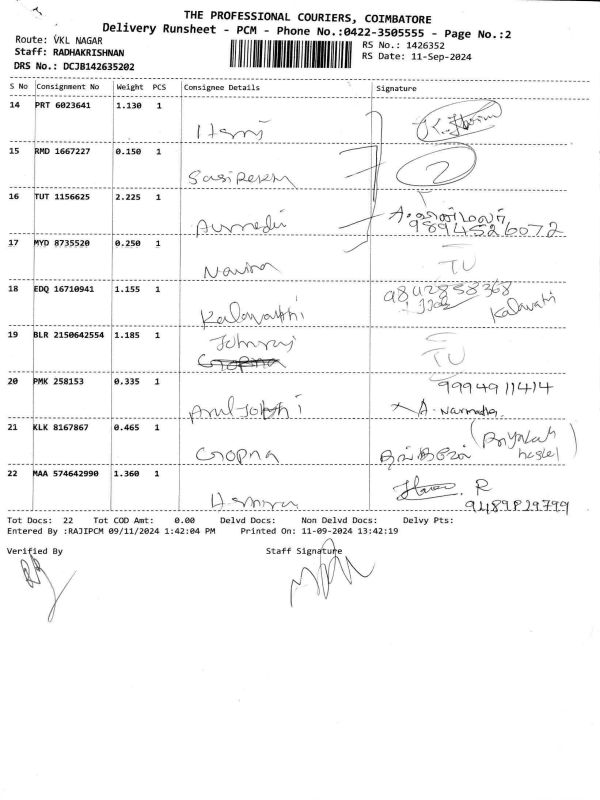 THE PROFESSIONAL COURIERS, COIMBATORE
Delivery Runsheet - PCM - Phone No.:0422-3505555 - Page No.:2
Route: VKL NAGAR
Staff: RADHAKRISHNAN
DRS No.: DCJB142635202
RS No.: 1426352
RS Date: 11-Sep-2024
S No Consignment No Weight PCS Consignee Details Signature
14 PRT 6023641 1.130 1
15 RMD 1667227 0.150 1
2
16 TUT 1156625 2.225 1
9894526072
17 MYD 8735520 0.250 1
Navina TU
18 EDQ 16710941 1.155 1
9842858368
Kalavathi Kalavathi
19 BLR 2150642554 1.185 1
TU
20 PMK 258153 0.335 1
9994911414
A. Narmadha
21 KLK 8167867 0.465 1
Gopna
22 MAA 574642990 1.360 1
R
9489829799
Tot Docs: 22 Tot COD Amt: 0.00 Delvd Docs: Non Delvd Docs: Delvy Pts:
Entered By :RAJIPCM 09/11/2024 1:42:04 PM Printed On: 11-09-2024 13:42:19
Verified By Staff Signature